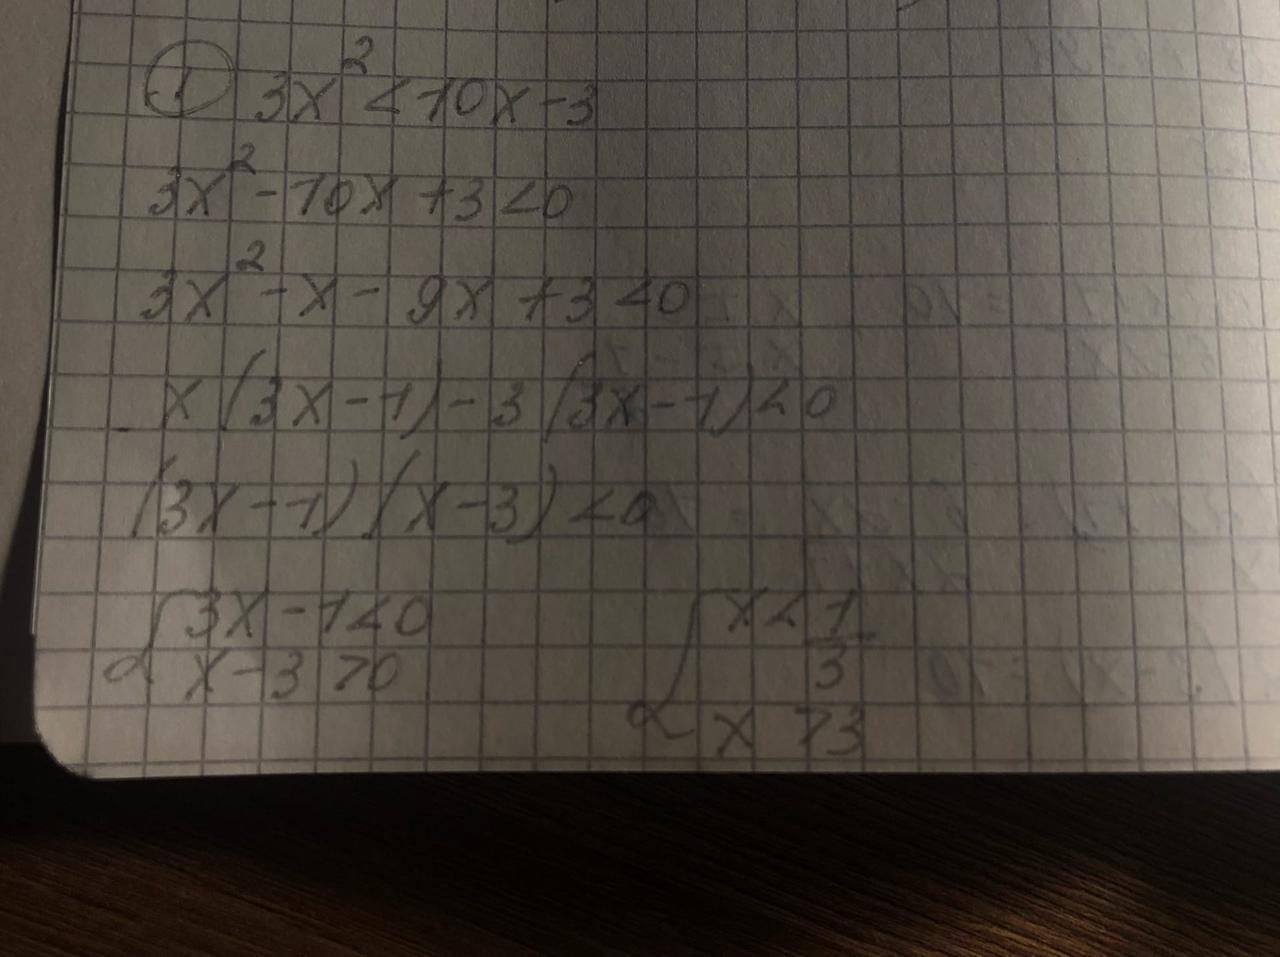 ① 3x² < 10x - 3
3x² - 10x + 3 < 0
3x² - x - 9x + 3 < 0
x (3x - 1) - 3 (3x - 1) < 0
(3x - 1) (x - 3) < 0
{ 3x - 1 < 0 { x < 1/3
x - 3 > 0 x > 3